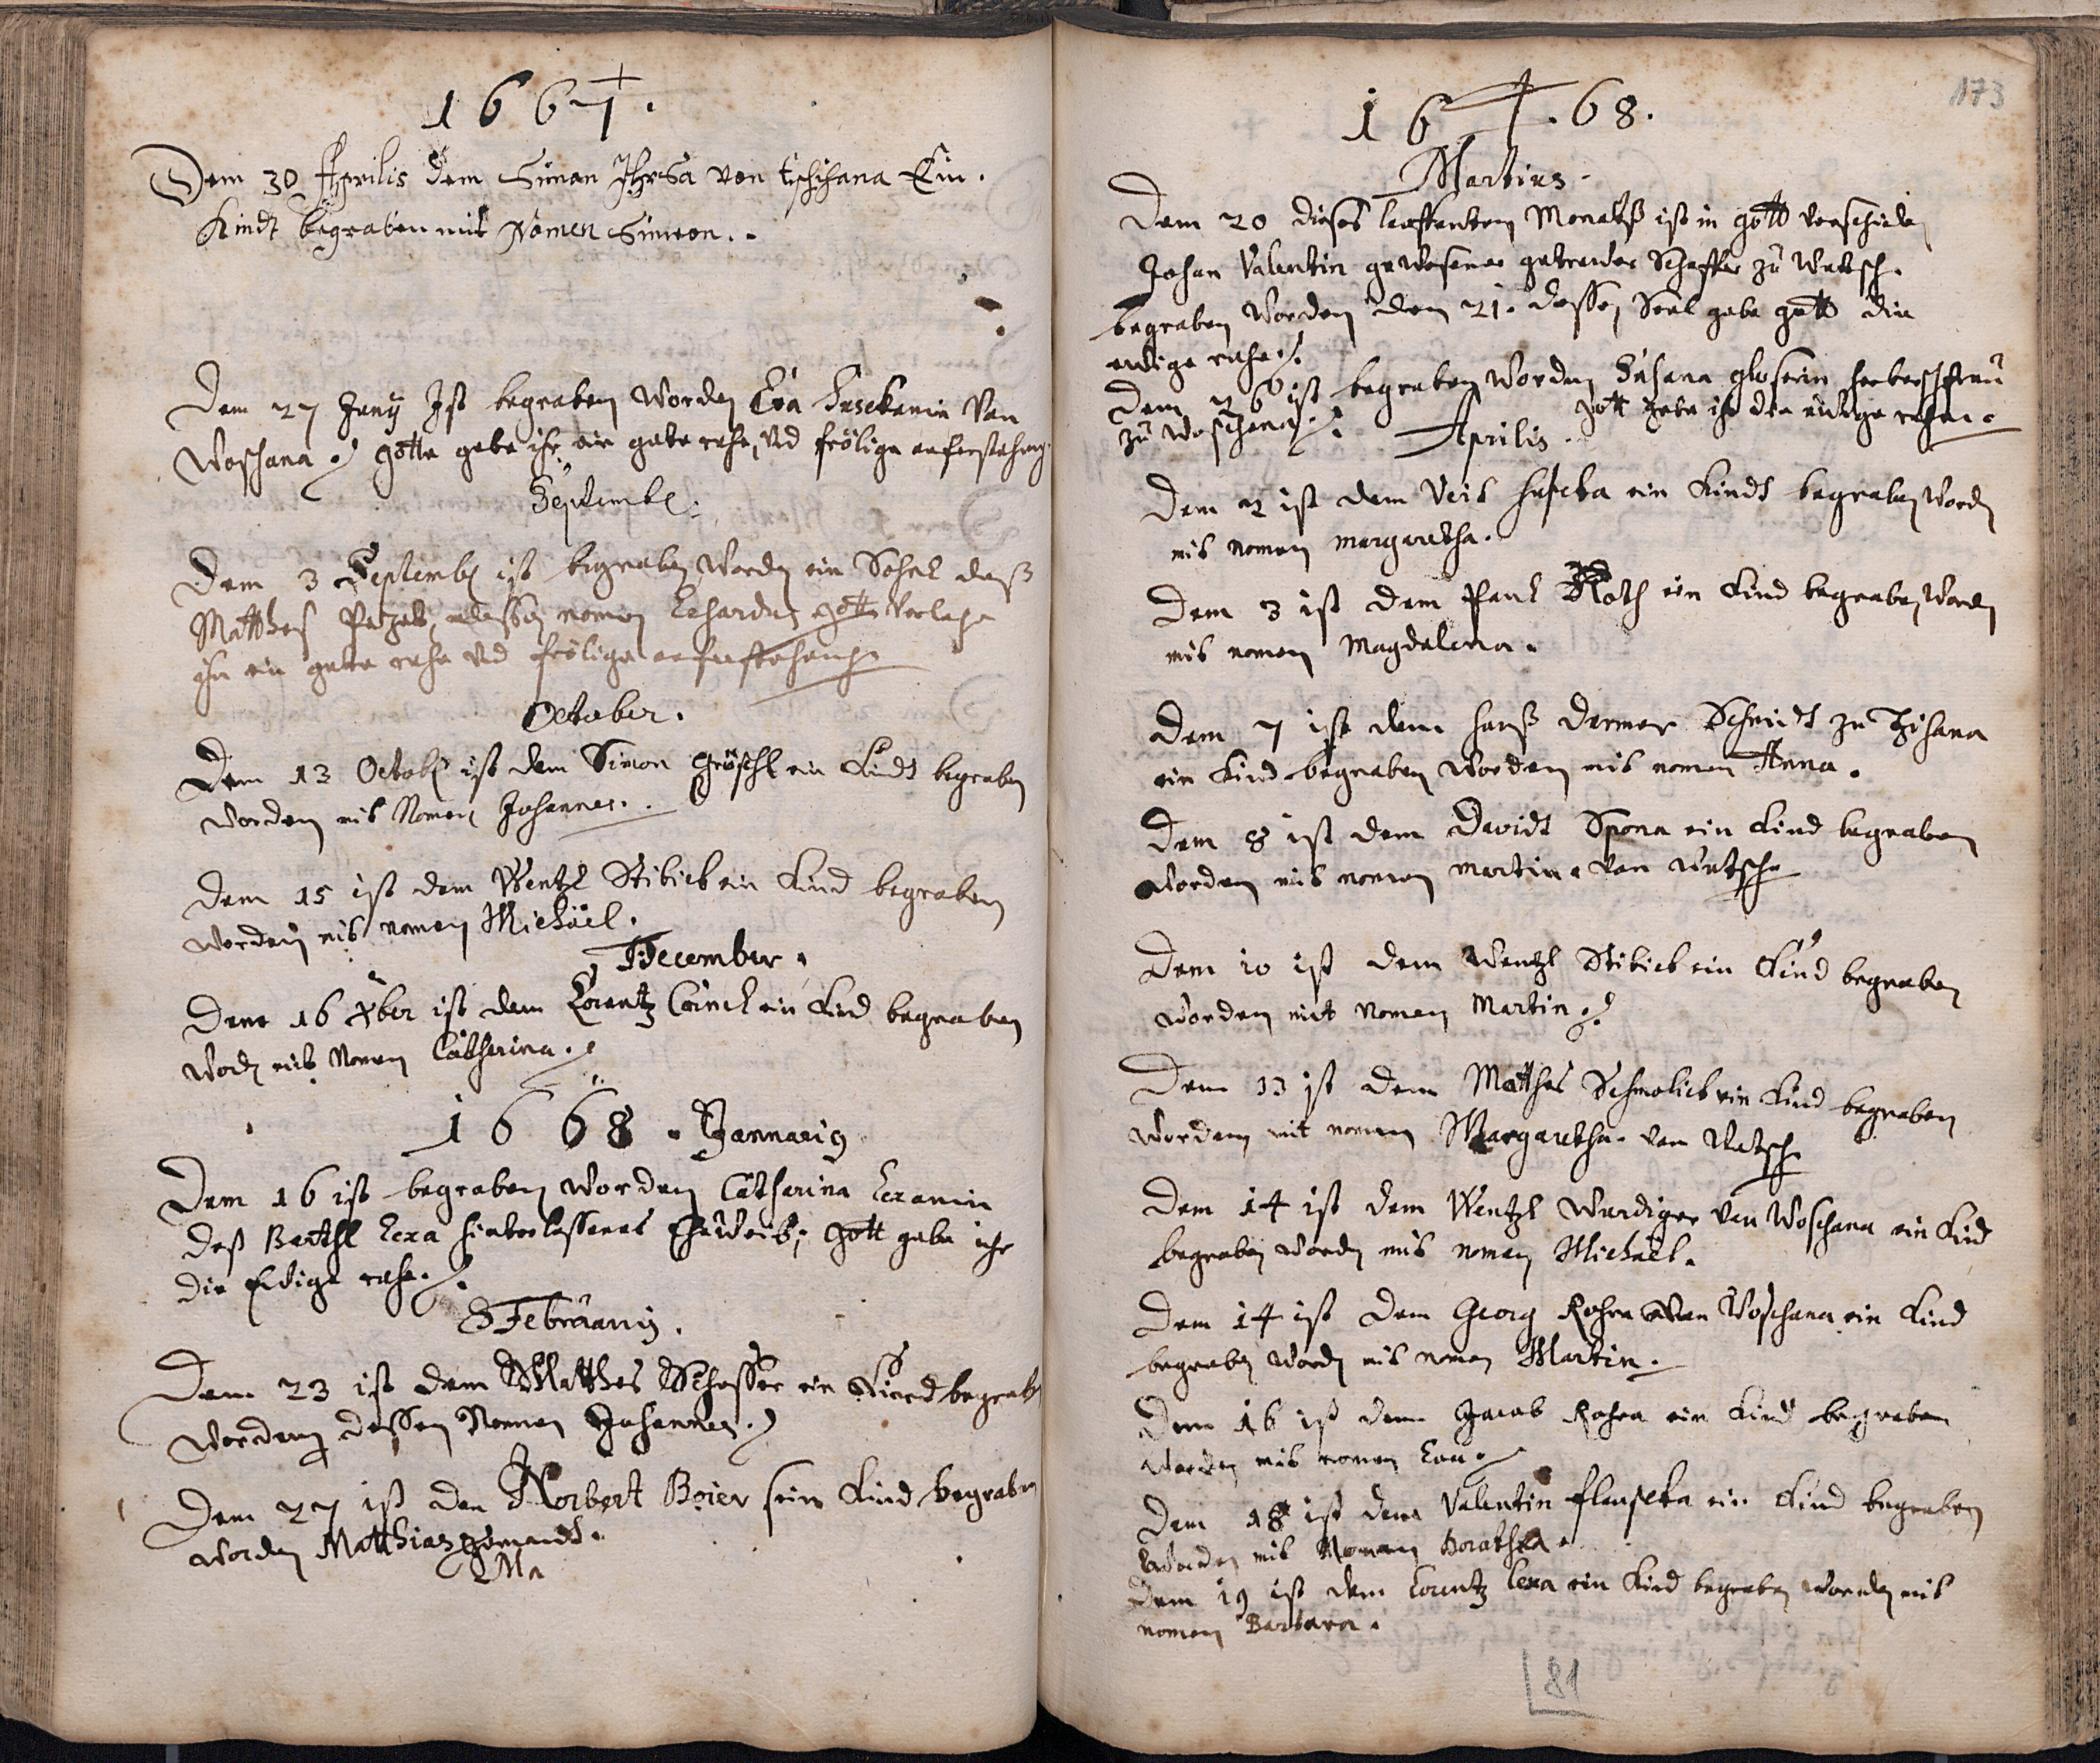 1667.
Dem 30 Aprilis dem Simon von Ein
Kindt begraben mit Nomen Simeon.
Dem 27 Juny Ist begraben worden Eva Husekanin Van
Woschana. Gotte gebe ihr ein gute ruhe, Vnd frölige auferstehung.
Septemb:
Dem 3 Septemb ist begraben worden ein Sohnl deß
Matthes dessen nomen Gott Verleihe
ihn ein gutte ruhe Vnd fröliga auferstehung
October.
Dem 13 Octob ist dem Simon Gröschl ein Kindt begraben
worden mit Nomen Johannes.
Dem 15 ist dem Wentzl Stibick ein Kind begraben
worden mit nomen Michäel.
December.
Dem 16 Xber ist dem Lorentz ein Kind begraben
word mit Nomen Catherina.
1668. Januarij
Dem 16 ist begraben worden Catherina Lexanin
deß Barthl Lexa hinterlassenes Eheweib, Gott gebe ihr
die Ewige ruhe.
Februarij.
Dem 23 ist dem Matthes Schosser ein Kind begrab
worden dessen Nomen Johannes.
Dem 27 ist den Norbert Boier sein Kind begraben
worden Matthias genandt.
Ma
173
16 . 68.
Martius.
Dem 20 dieses lauffenten Monatß ist in gott verschieden
Johan Valentin gewesener getreuder Schaffer zu Wettsch.
begraben worden den 21. dessen Seel gebe gott die
ewige ruhe.
Dem 26 ist begraben worden Susana gloserin
zu Woschana. Gott gebe ihr die ewige ruhe.
Aprilis.
Dem 2 ist dem Veit Huscka ein Kindt begraben word
mit nomen margaretha.
Dem 3 ist dem Paul Roth ein Kind begraben word
mit nomen Magdalena.
Dem 7 ist dem Hanß Schmidt zu
ein Kind begraben worden mit nomen Anna.
Dem 8 ist dem Davidt Spona ein Kind begraben
worden mit nomen martin. von wetsch
Dem 10 ist dem Wentzl Stibick ein Kind begraben
worden mit Nomen Martin.
Dem 13 ist dem Matthes Schmolick ein Kind begraben
worden mit nomen Margaretha. von Wetsch
Dem 14 ist dem Wentzl Wurdiger von Woschana ein Kind
begraben worden mit nomen Michäel.
Dem 14 ist dem Georg Rohra Von Woschana ein Kind
begraben word mit nomen Martin.
Dem 16 ist dem Jacob Rohra ein Kind begraben
worden mit nomen Eva.
Dem 18 ist dem Valentin ein Kind begraben
worden mit Nomen
Dem 19 ist dem Lorentz Lexa ein Kind begraben worden mit
nomen Barbara.
81